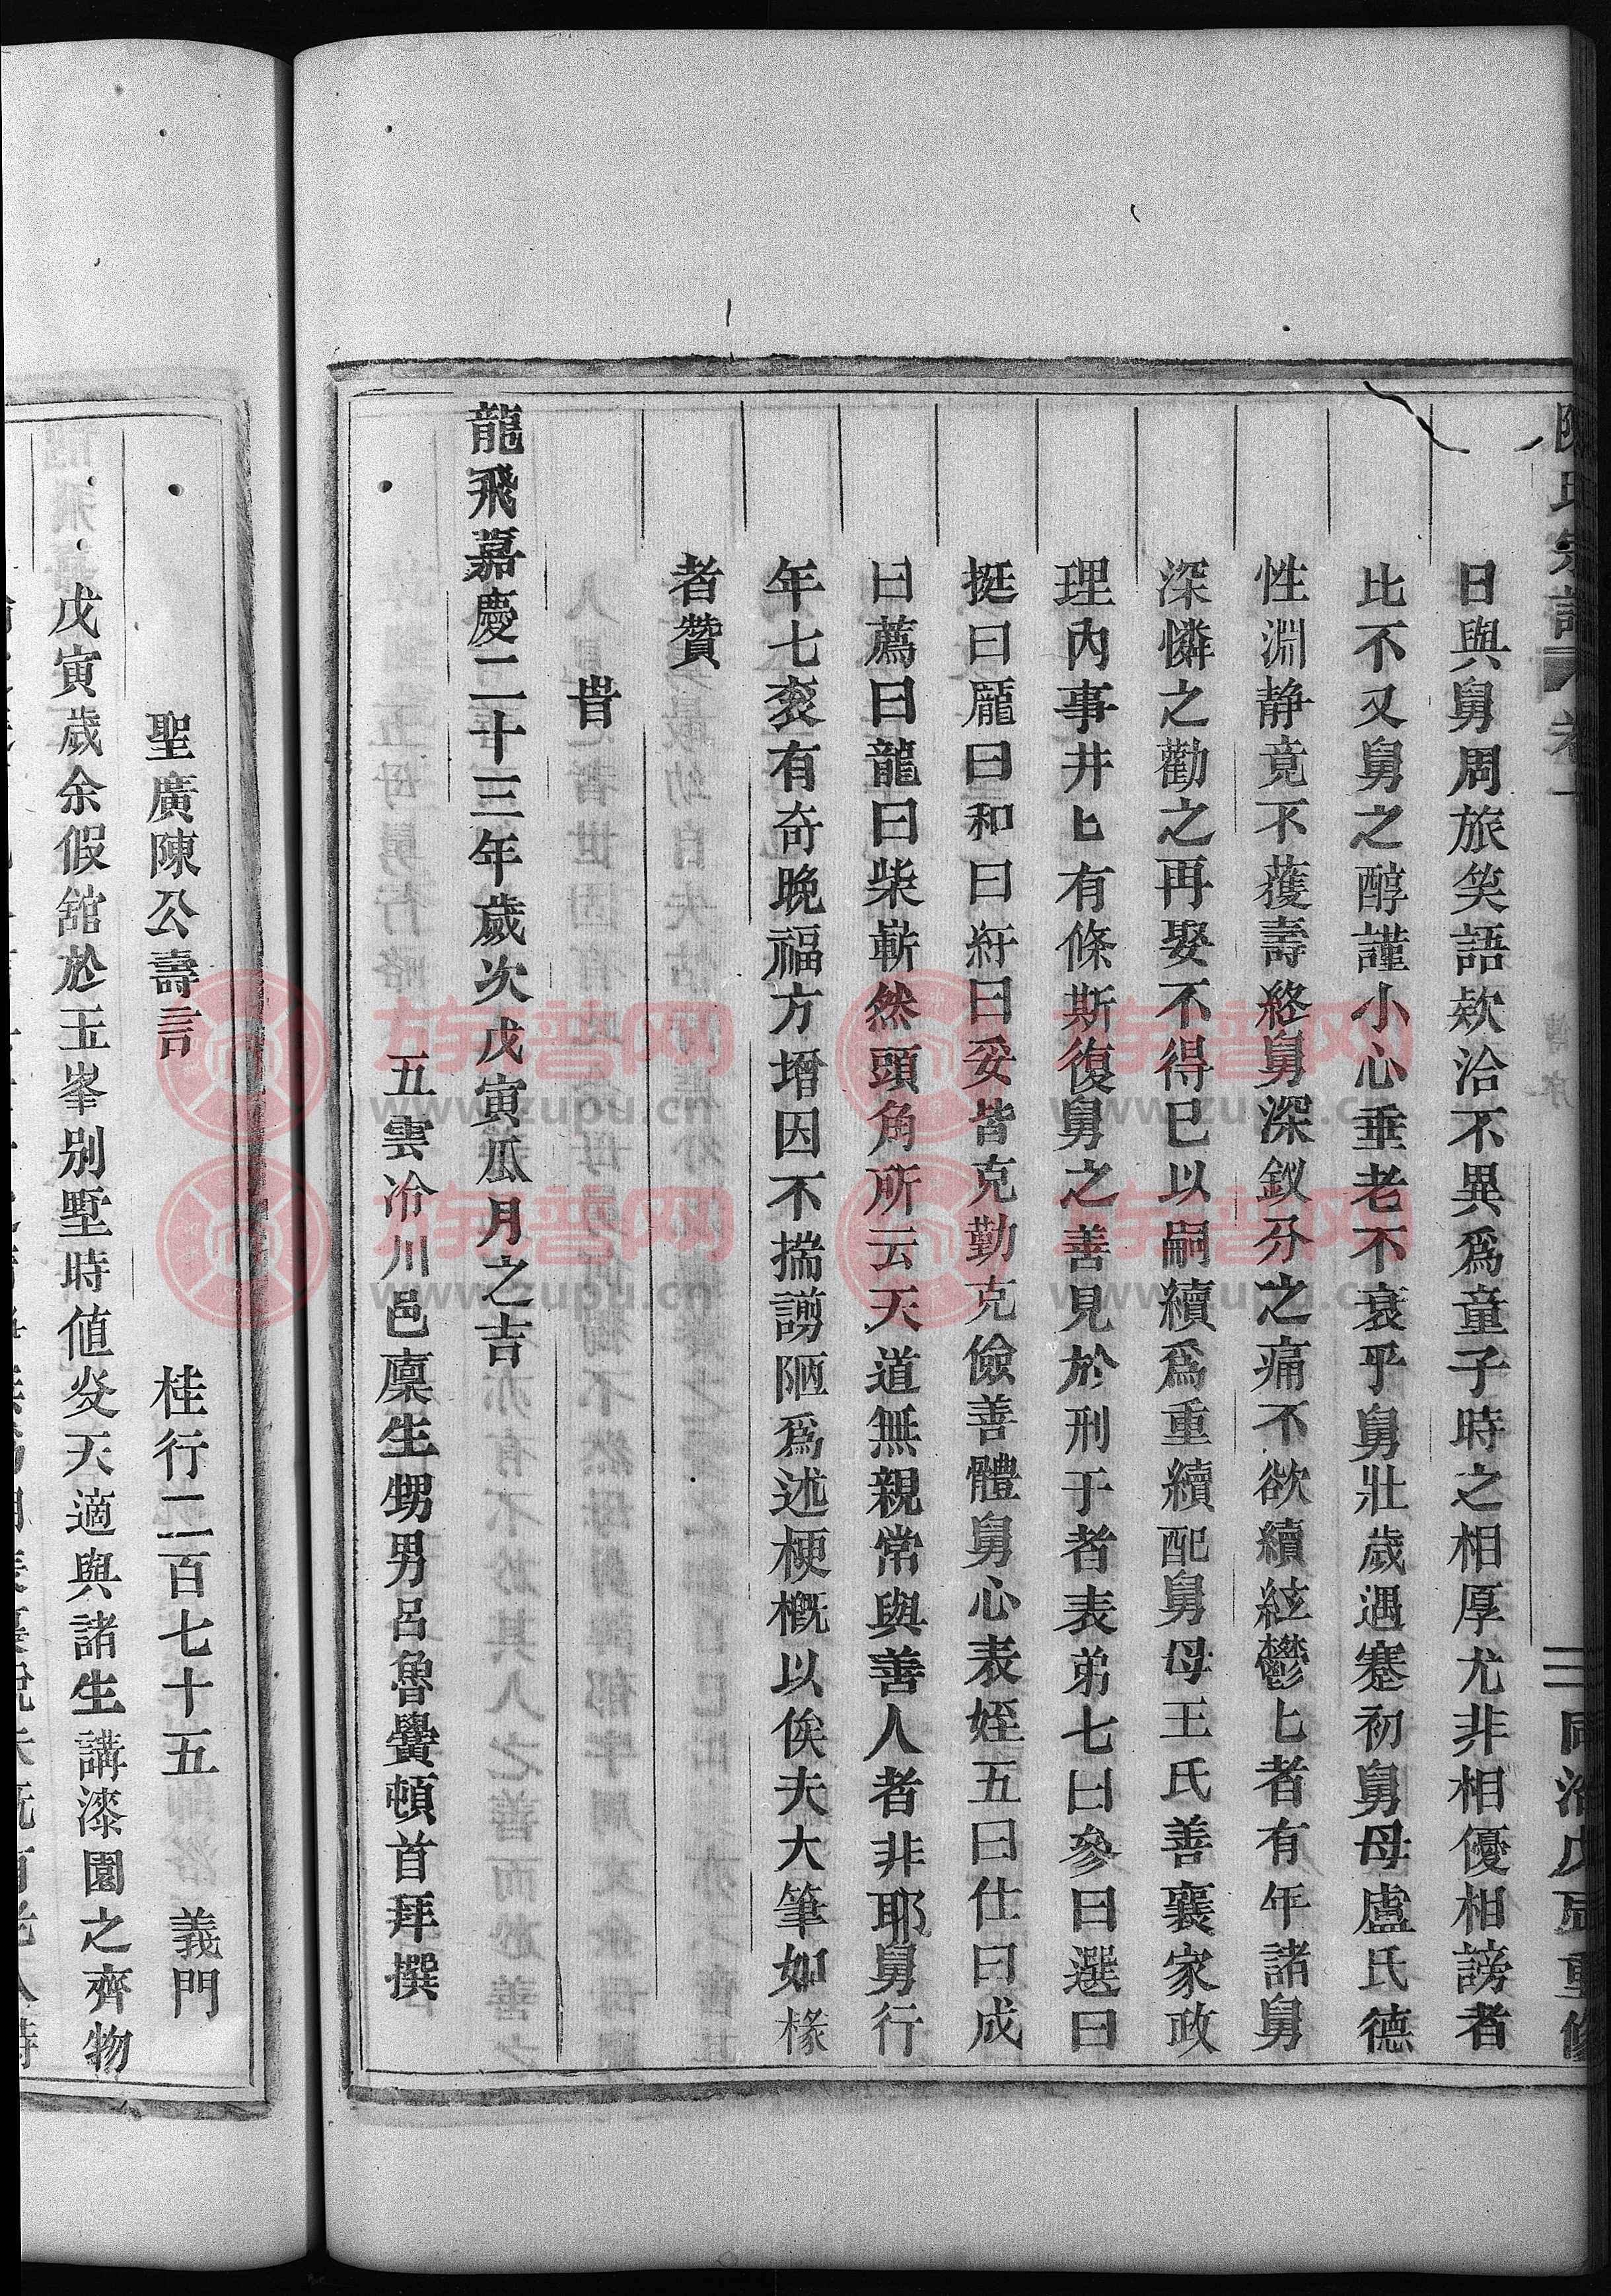 陳氏宗譜 卷一
傳序
三 同治戊辰重修
日與舅周旅笑語欵洽不異爲童子時之相厚尤非相優相謗者
比不又舅之醇謹小心垂老不衰乎舅壯歲遇蹇初舅母盧氏德
性淵静竟不蒦壽終舅深釵分之痛不欲續絃鬱匕者有年諸舅
深憐之勸之再娶不得已以嗣續爲重續配舅母王氏善襄家政
理內事井匕有條斯復舅之善見於刑于者表弟七曰參曰選曰
挺曰龎曰和曰紆曰妥皆克勤克儉善體舅心表姪五曰仕曰成
曰薦曰龍曰柴嶄然頭角所云天道無親常與善人者非耶舅行
年七袠有奇晚福方增因不揣謭陋爲述梗概以俟夫大筆如椽
者贊
旹
龍飛嘉慶二十三年歲次戊寅瓜月之吉
五雲冷川邑廩生甥男呂魯黌頓首拜撰
聖廣陳公壽言 桂行二百七十五 義門
戊寅歲余假舘於玉峯別墅時值炎天適與諸生講漆園之齊物
族譜网
www.zupu.cn
族譜网
www.zupu.cn
族譜网
www.zupu.cn
族譜网
www.zupu.cn